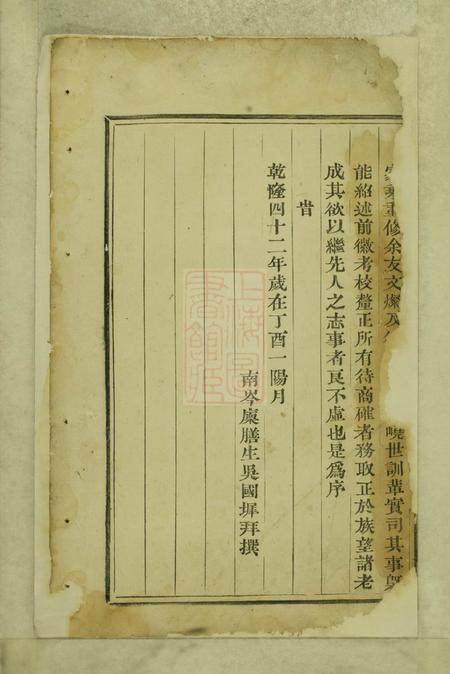 修余友文燦及
曉世訓輩實司其事
能紹述前徽考校釐正所有待商確者務取正於族望諸老
成其欲以繼先人之志事者良不虛也是爲序
旹
乾隆四十二年歲在丁酉一陽月
南岑廩膳生吳國墀拜撰
上海圖書館藏